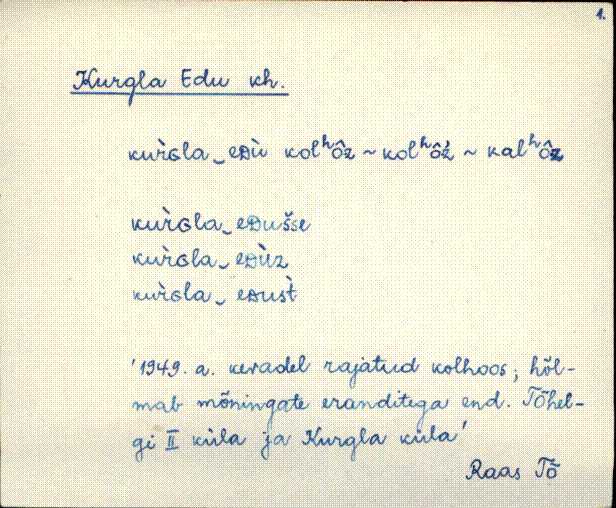 1.
Kurgla Edu kh.
kuʀ̀ɢla‿eᴅù kolʰôz ~ kolʰôź ~ kalʰôz
kuʀ̀ɢla‿eᴅušse
kuʀ̀ɢla‿eᴅùz
kuʀ̀ɢla‿eᴅust̀
'1949. a. kevadel rajatud kolhoos; hõl-
mab mõningate eranditega end. Tõhel-
gi II küla ja Kurgla küla'
Raas Tõ